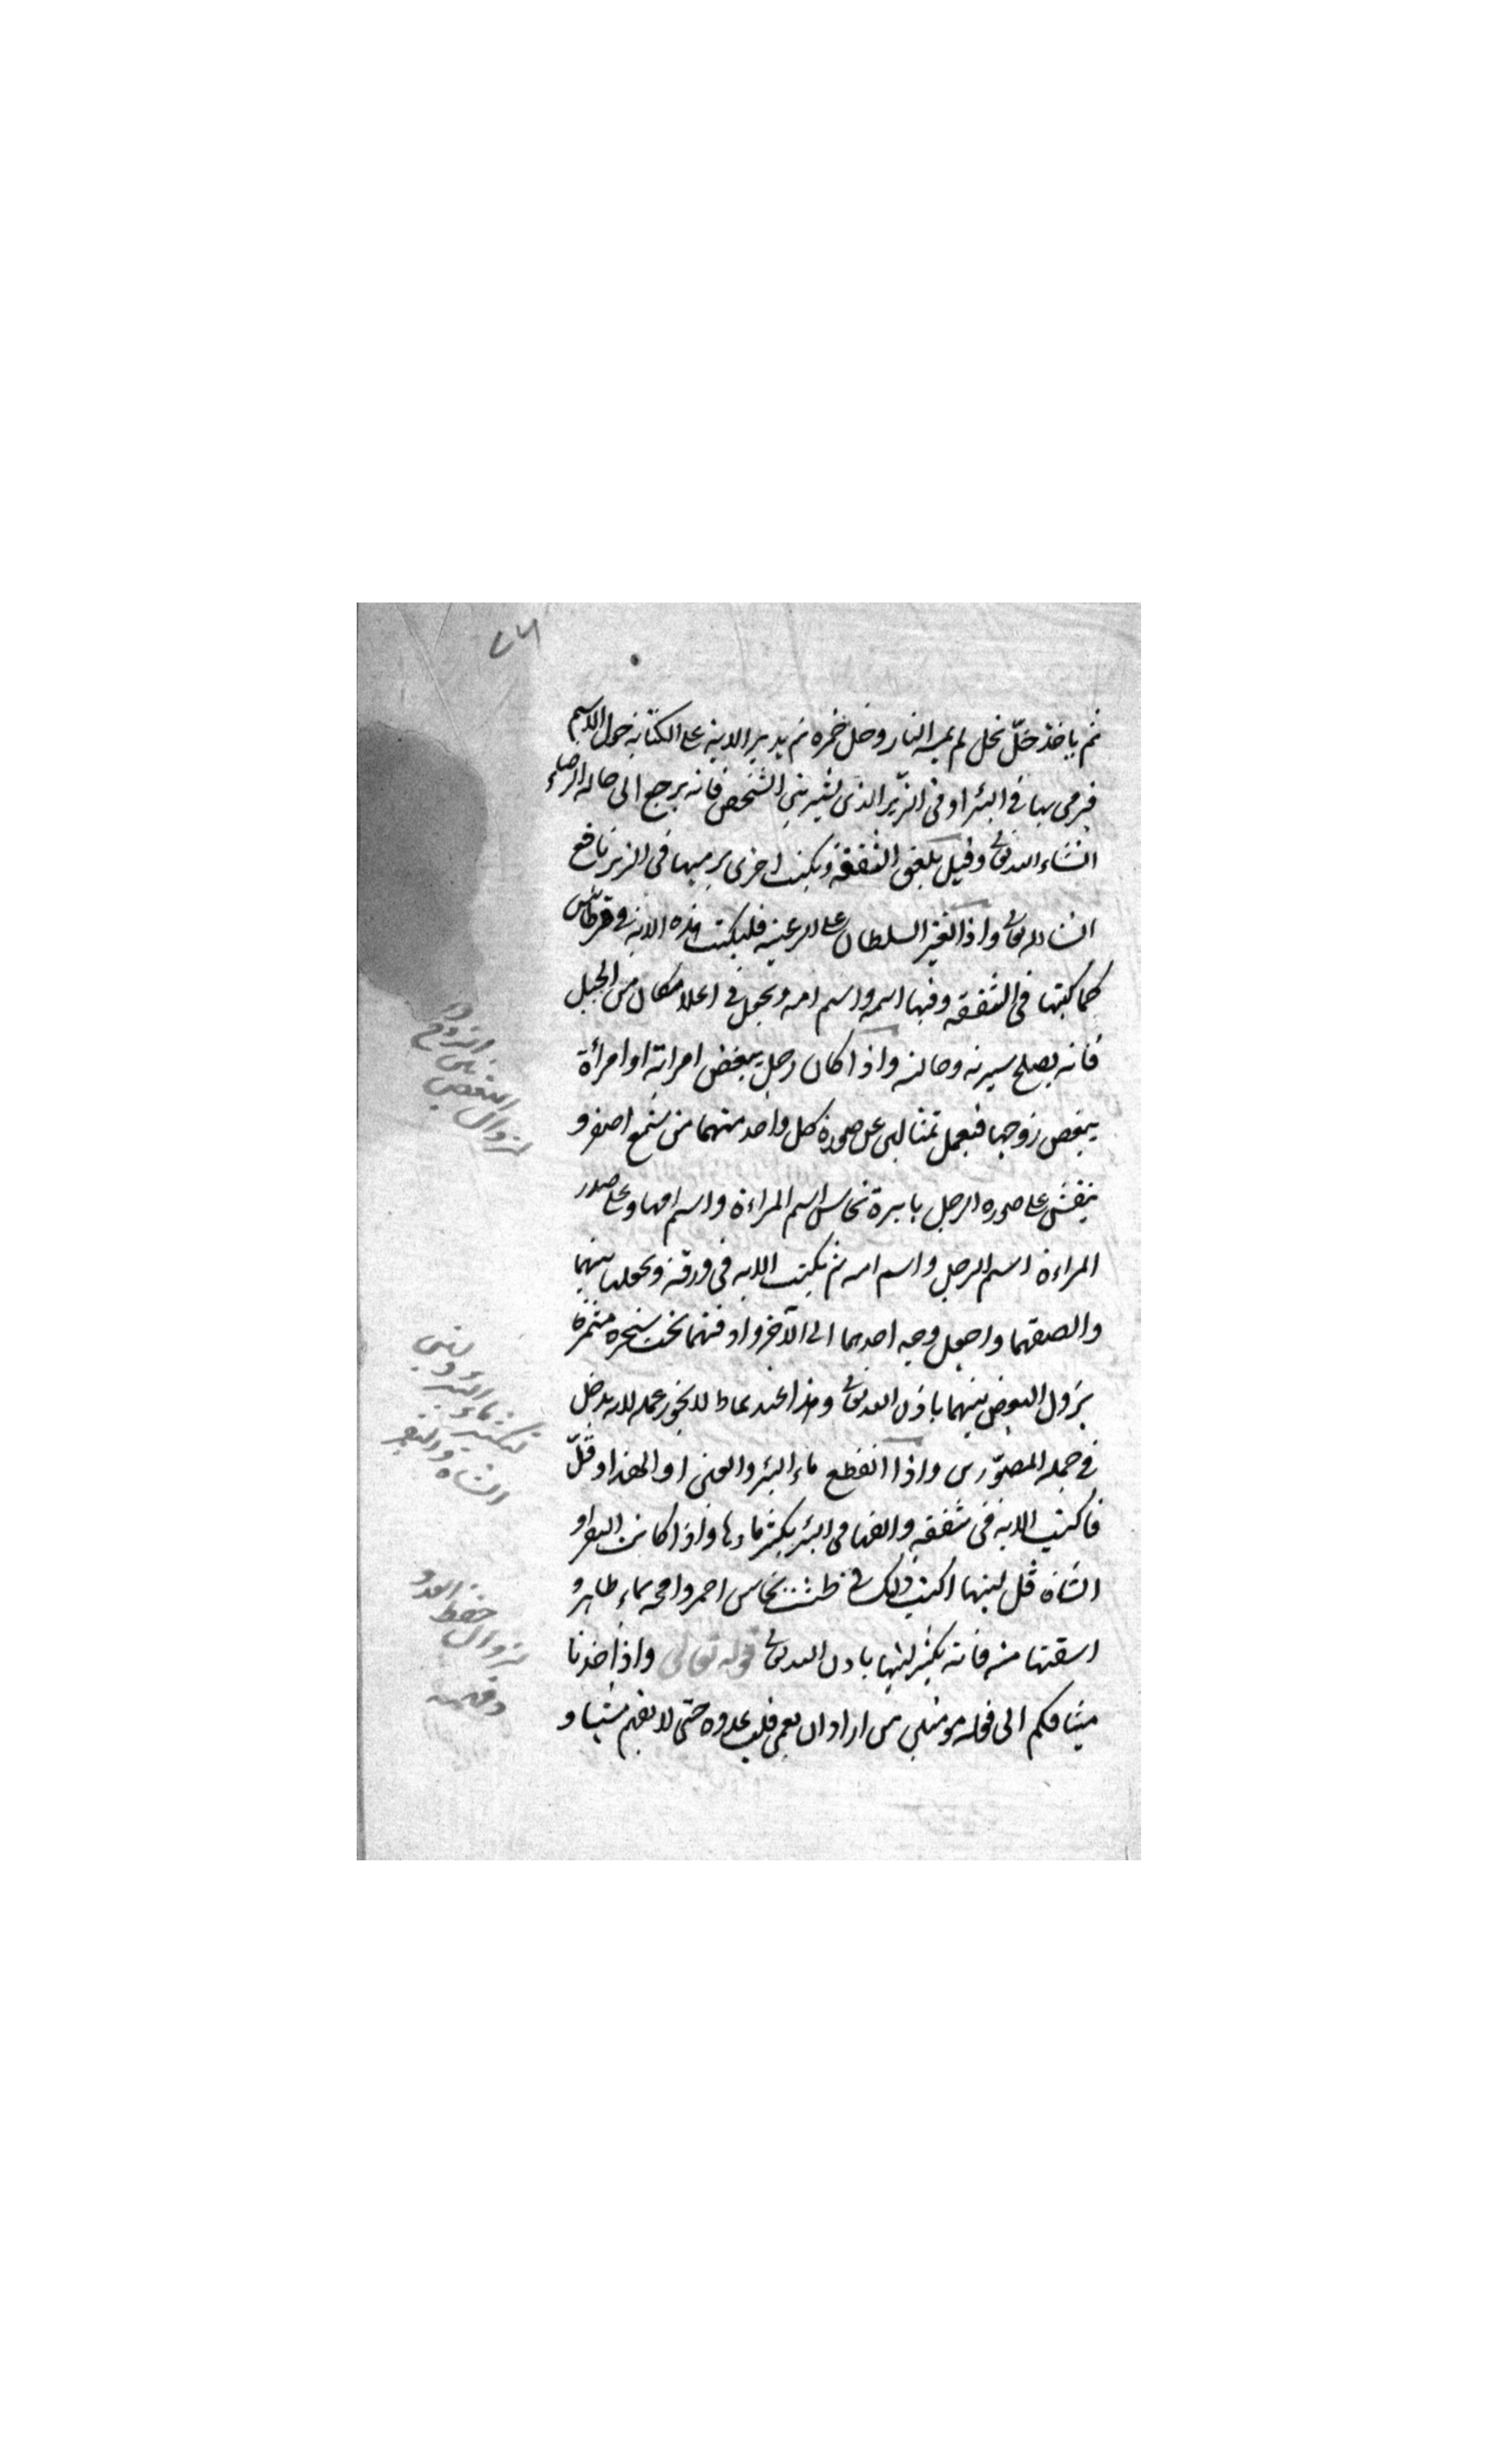 ثم ياخذ خلّ نحل لم يمسه النار وخل خمره ثم يدير الاية على الكتابة حول الاسم
فيرمى بها فى البئر او فى الزير الذى يشرب الشخص فانه يرجع الى حاله الرضاء
انشاء الله تعالى وقيل تعلق الشقفة ويكتب اخرى يرميها فى الزير نافع
انشا الله تعالى واذا تغير السلطان على الرعية فليكتب هذه الاية فى قرطاس
كما كتبتها فى الشقفه وفيها اسمه واسم امه ويجعل فى اعلا مكان من الجبل
فانه يصلح سيرته وحالته واذا كان رجل يبغض امراته او امرأة
يبغض زوجها فيعمل تمثالين على صورة كل واحد منهما من شمع اصفر و
ينقش على صوره الرجل بابرة نحاس اسم المراءة واسم امها وعلى صدر
المراءة اسم الرجل واسم امه ثم يكتب الايه فى ورقة ويجعلها بينهما
والصقهما واجعل وجه احدهما الى الآخر وادفنهما تحت شجره مثمرة
يزول البغض بينهما باذن الله تعالى وهذا عند لا يجوز عمله لانه يدخل
فى جمله المصوّرين واذا انقطع ماء البئر والعين او النهر او قلّ
فاكتب الاية فى شقفه والقها فى البئر يكثر ماءها واذا كانت البقر او
الشاة قل لبنها اكتب ذلك فى طشت نحاس احمر وامحه بماء طاهر و
اسقتها منه فانه يكثر لبنها باذن الله تعالى قوله تعالى واذ اخذنا
ميثاقكم الى قوله مومنين من اراد ان يعمى قلب عدوه حتى لا يفهم شيئا و
لزوال البغض بين الزوج
لتكثير ماء البئر ولبن
الشاه والبقر
لزوال حفظ العدو
وفهمه